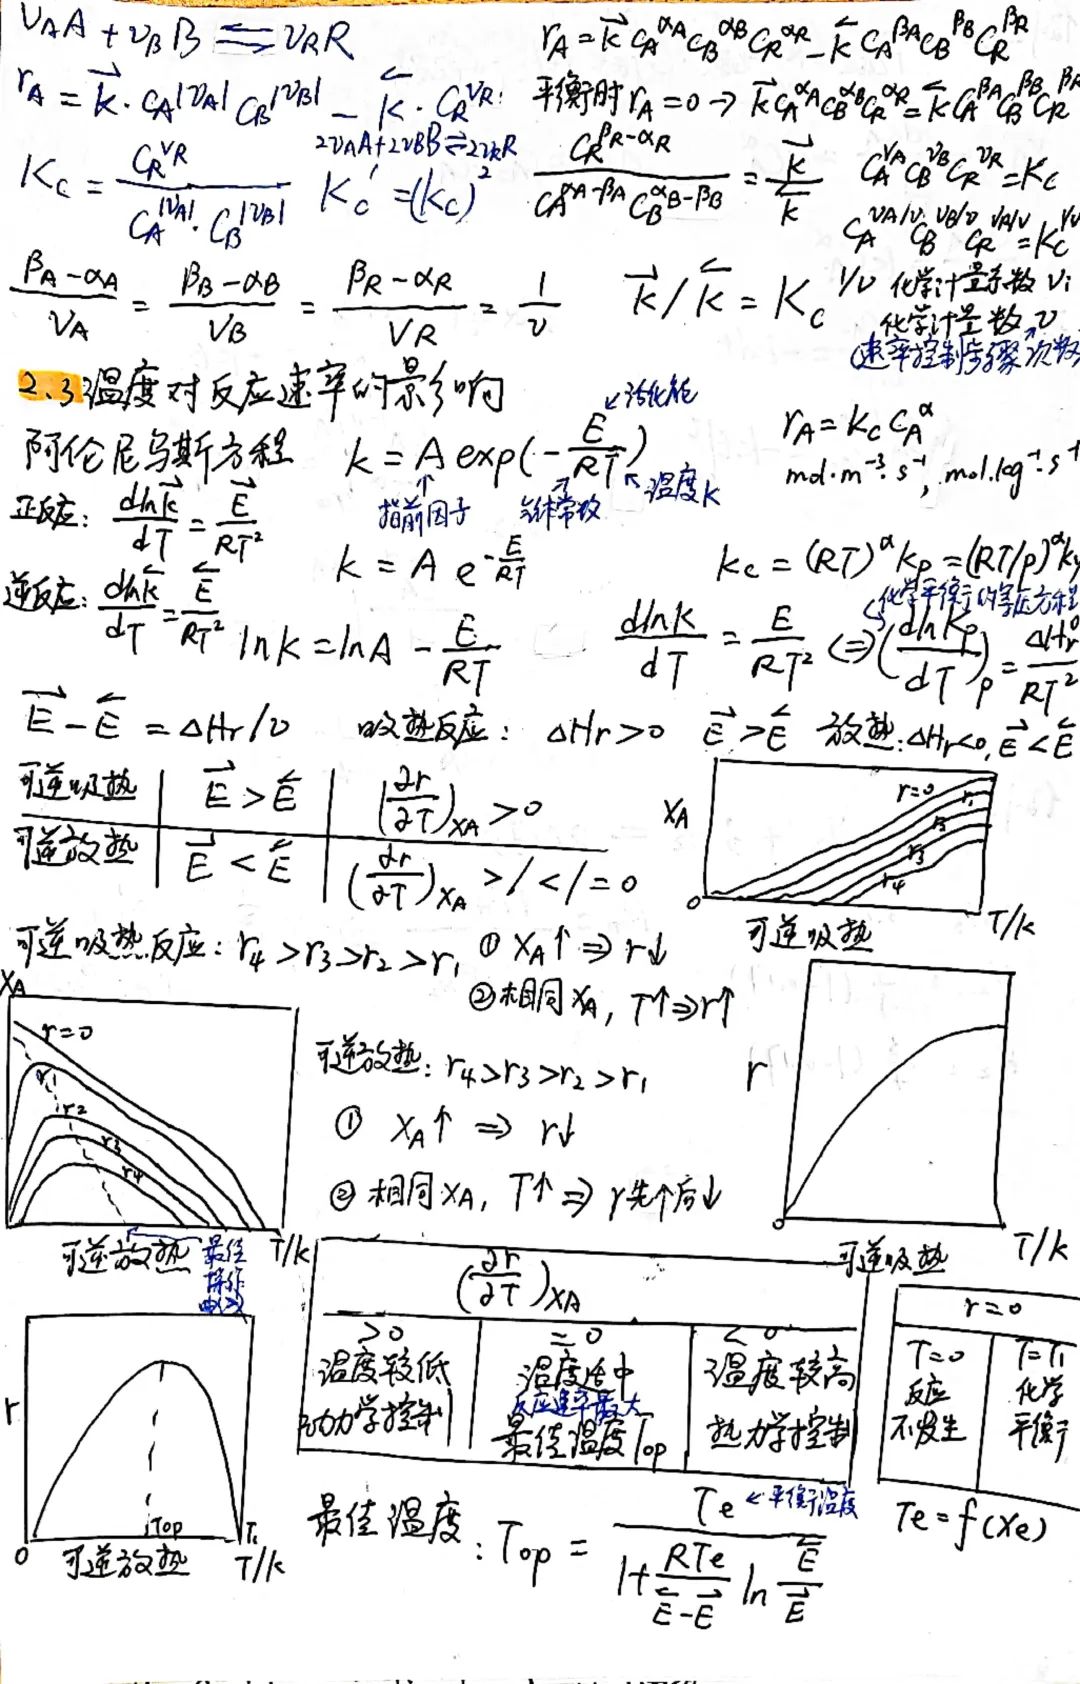 νAA + νBB ⇌ νRR
rA = k⃗ cA^αA cB^αB cR^αR − k⃖ cA^βA cB^βB cR^βR
rA = k⃗ · cA^|νA| cB^|νB| − k⃖ · cR^νR
平衡时 rA = 0 → k⃗ cA^αA cB^αB cR^αR = k⃖ cA^βA cB^βB cR^βR
2νAA + 2νBB ⇌ 2νRR
Kc = cR^νR / (cA^|νA| · cB^|νB|)
Kc' = (Kc)^2
cR^(βR−αR) / (cA^(αA−βA) cB^(αB−βB)) = k⃗ / k⃖
cA^νA cB^νB cR^νR = Kc
cA^(νA/ν) cB^(νB/ν) cR^(νA/ν) = Kc^(1/ν)
(βA−αA)/νA = (βB−αB)/νB = (βR−αR)/νR = 1/ν
k⃗/k⃖ = Kc^(1/ν)
化学计量系数 νi
化学计量数 ν
(速率控制步骤次数
2.3 温度对反应速率的影响
阿伦尼乌斯方程 k = A exp(−E/RT)
↙活化能
指前因子 气体常数 温度K
rA = kc cA^α
mol·m⁻³·s⁻¹, mol·kg⁻¹·s⁻¹
正反应: dlnk⃗/dT = E⃗/RT²
k = A e^(−E/RT)
kc = (RT)^α kp = (RT/p)^α ky
逆反应: dlnk⃖/dT = E⃖/RT²
lnk = lnA − E/RT
化学平衡的等压方程
dlnk/dT = E/RT² ⇔ (dlnKp/dT)p = ΔHr°/RT²
E⃗ − E⃖ = ΔHr/ν 吸热反应: ΔHr>0 E⃗>E⃖ 放热: ΔHr<0, E⃗<E⃖
可逆吸热 E⃗ > E⃖ (∂r/∂T)xA > 0
可逆放热 E⃗ < E⃖ (∂r/∂T)xA >/</=0
XA
r=0
r1
r2
r3
r4
0 T/k
可逆吸热
可逆吸热反应: r4>r3>r2>r1 ① XA↑ ⇒ r↓
② 相同XA, T↑⇒r↑
XA
r=0
r1
r2
r3
r4
可逆放热 最佳操作曲线 T/k
可逆放热: r4>r3>r2>r1
① XA↑ ⇒ r↓
② 相同XA, T↑ ⇒ r先↑后↓
r
0 T/k
可逆吸热
(∂r/∂T)xA
>0 =0 <0
温度较低 温度适中 温度较高
反应速率最大
动力学控制 最佳温度Top 热力学控制
r=0
T=0 T=T1
反应 化学
不发生 平衡
r
Top T1
0 可逆放热 T/k
最佳温度: Top = Te / (1 + RTe/(E⃖−E⃗) ln E⃖/E⃗)
← 平衡温度
Te = f(Xe)